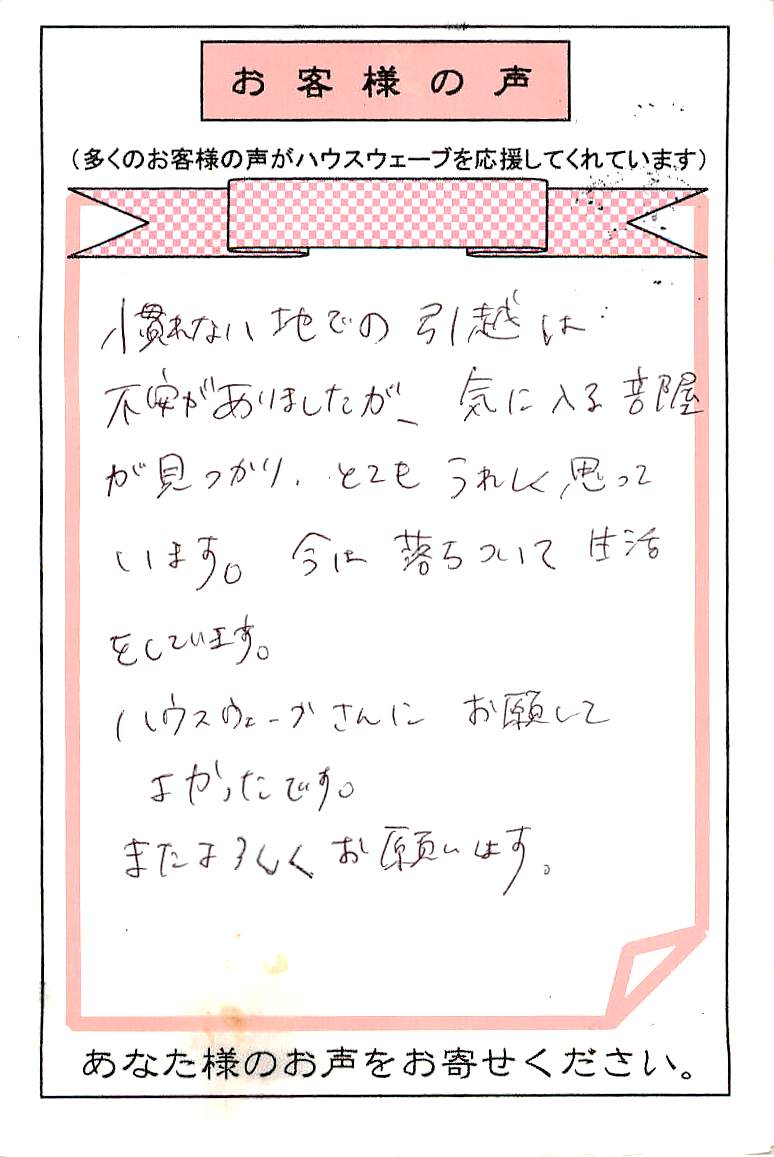 お客様の声
（多くのお客様の声がハウスウェーブを応援してくれています）
慣れない地での引越は
不安がありましたが、気に入る部屋
が見つかり、とてもうれしく思って
います。今は落ちついて生活
をしています。
ハウスウェーブさんにお願いして
よかったです。
またよろしくお願いします。
あなた様のお声をお寄せください。